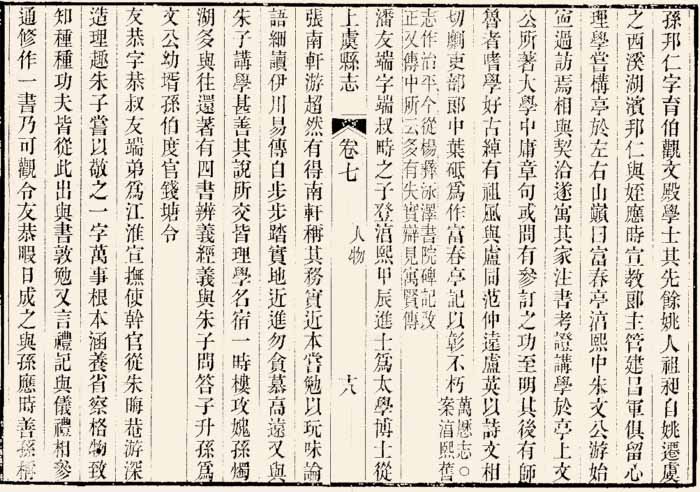 孫邦仁字育伯觀文殿學士其先餘姚人祖昶自姚遷虞
之西溪湖濱邦仁與姪應時宣教郎主管建昌軍俱留心
理學嘗構亭於左右山巔曰富春亭淯熙中朱文公游始
寍過訪焉相與契洽遂寓其家注書考證講學於亭上文
公所著大學中庸章句或問有參訂之功至明其後有師
魯者嗜學好古綽有祖風與盧同范仲遠盧英以詩文相
切劘吏部郎中葉砥爲作富春亭記以彰不朽萬厯志○案淯熙舊
志作治平今從楊彝泳澤書院碑記改
正又傳中所云多有失實辯見寓賢傳
潘友端字端叔畤之子登淯熙甲辰進士爲太學博士從
上虞縣志
卷七
人物
十六
張南軒游超然有得南軒稱其務實近本嘗勉以玩味論
語細讀伊川易傳自步步踏實地近進勿貪慕高遠又與
朱子講學甚善其說所交皆理學名宿一時樓攻媿孫燭
湖多與往還著有四書辨義經義與朱子問答子升孫爲
文公幼壻孫伯度官錢塘令
友恭字恭叔友端弟爲江淮宣撫使幹官從朱晦菴游深
造理趣朱子嘗以敬之一字萬事根本涵養省察格物致
知種種功夫皆從此出與書敦勉又言禮記與儀禮相參
通修作一書乃可觀令友恭暇日成之與孫應時善孫稱